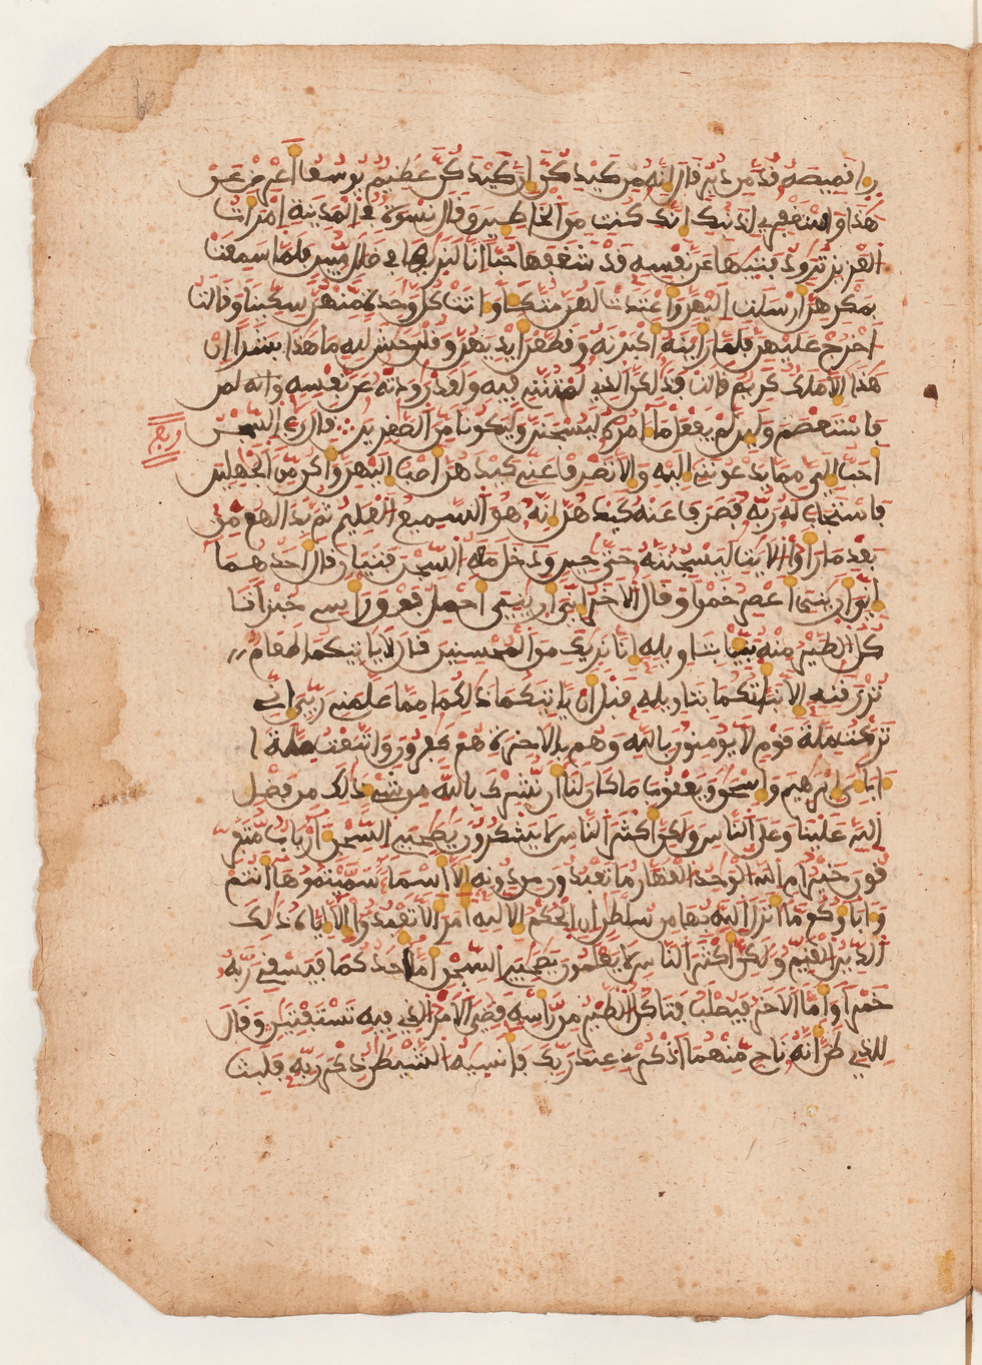 را قميصه قد من دبر قال إنه من كيدكن إن كيدكن عظيم يوسف أعرض عن
هذا واستغفري لذنبك إنك كنت من الخاطين وقال نسوة في المدينة امرات
العزيز تراود فتيها عن نفسه قد شغفها حبا إنا لنريها في ضلل مبين فلما سمعت
بمكرهن أرسلت إليهن وأعتدت لهن متكا وءاتت كل وحدة منهن سكينا وقالت
اخرج عليهن فلما رأينه أكبرنه وقطعن أيديهن وقلن حش لله ما هذا بشرا إن
هذا إلا ملك كريم قالت فذلكن الذي لمتنني فيه ولقد رودته عن نفسه وانه لمر
فاستعصم ولين لم يفعل ما ءامره ليسجنن وليكونا من الصغرين قال رب السجن
ربع
أحب إلي مما يدعونني إليه وإلا تصرف عني كيدهن أصب إليهن وأكن من الجهلين
فاستجاب له ربه فصرف عنه كيدهن إنه هو السميع العليم ثم بدا لهم من
بعد ما رأوا الايت ليسجننه حتى حين ودخل معه السجن فتين قال أحدهما
إني أريني أعصر خمرا وقال الاخر إني أريني أحمل فوق رأسي خبزا تا
كل الطير منه نبينا بتاويله إنا نريك من المحسنين قال لا ياتيكما طعام
ترزقنه إلا نباتكما بتاويله قبل أن ياتيكما ذلكما مما علمني ربي إني
تركت ملة قوم لا يومنون بالله وهم بالاخرة هم كفرون واتبعت ملة ا
ءاباءي إبرهيم وإسحق ويعقوب ما كان لنا أن نشرك بالله من شيء ذلك من فضل
الله علينا وعلى الناس ولكن أكثر الناس لا يشكرون يصحبي السجن أرباب متفر
قون خير ام الله الوحد القهار ما تعبدون من دونه إلا أسماء سميتموها أنتم
وءاباوكم ما أنزل الله بها من سلطن إن الحكم إلا لله أمر ألا تعبدوا إلا إياه ذلك
الدين القيم ولكن أكثر الناس لا يعلمون يصحبي السجن أما أحدكما فيسقي ربه
خمرا وأما الاخر فيصلب فتاكل الطير من رأسه قضي الامر الذي فيه تستفتين وقال
للذي ظن أنه ناج منهما اذكرني عند ربك فأنسيه الشيطن ذكر ربه فلبث